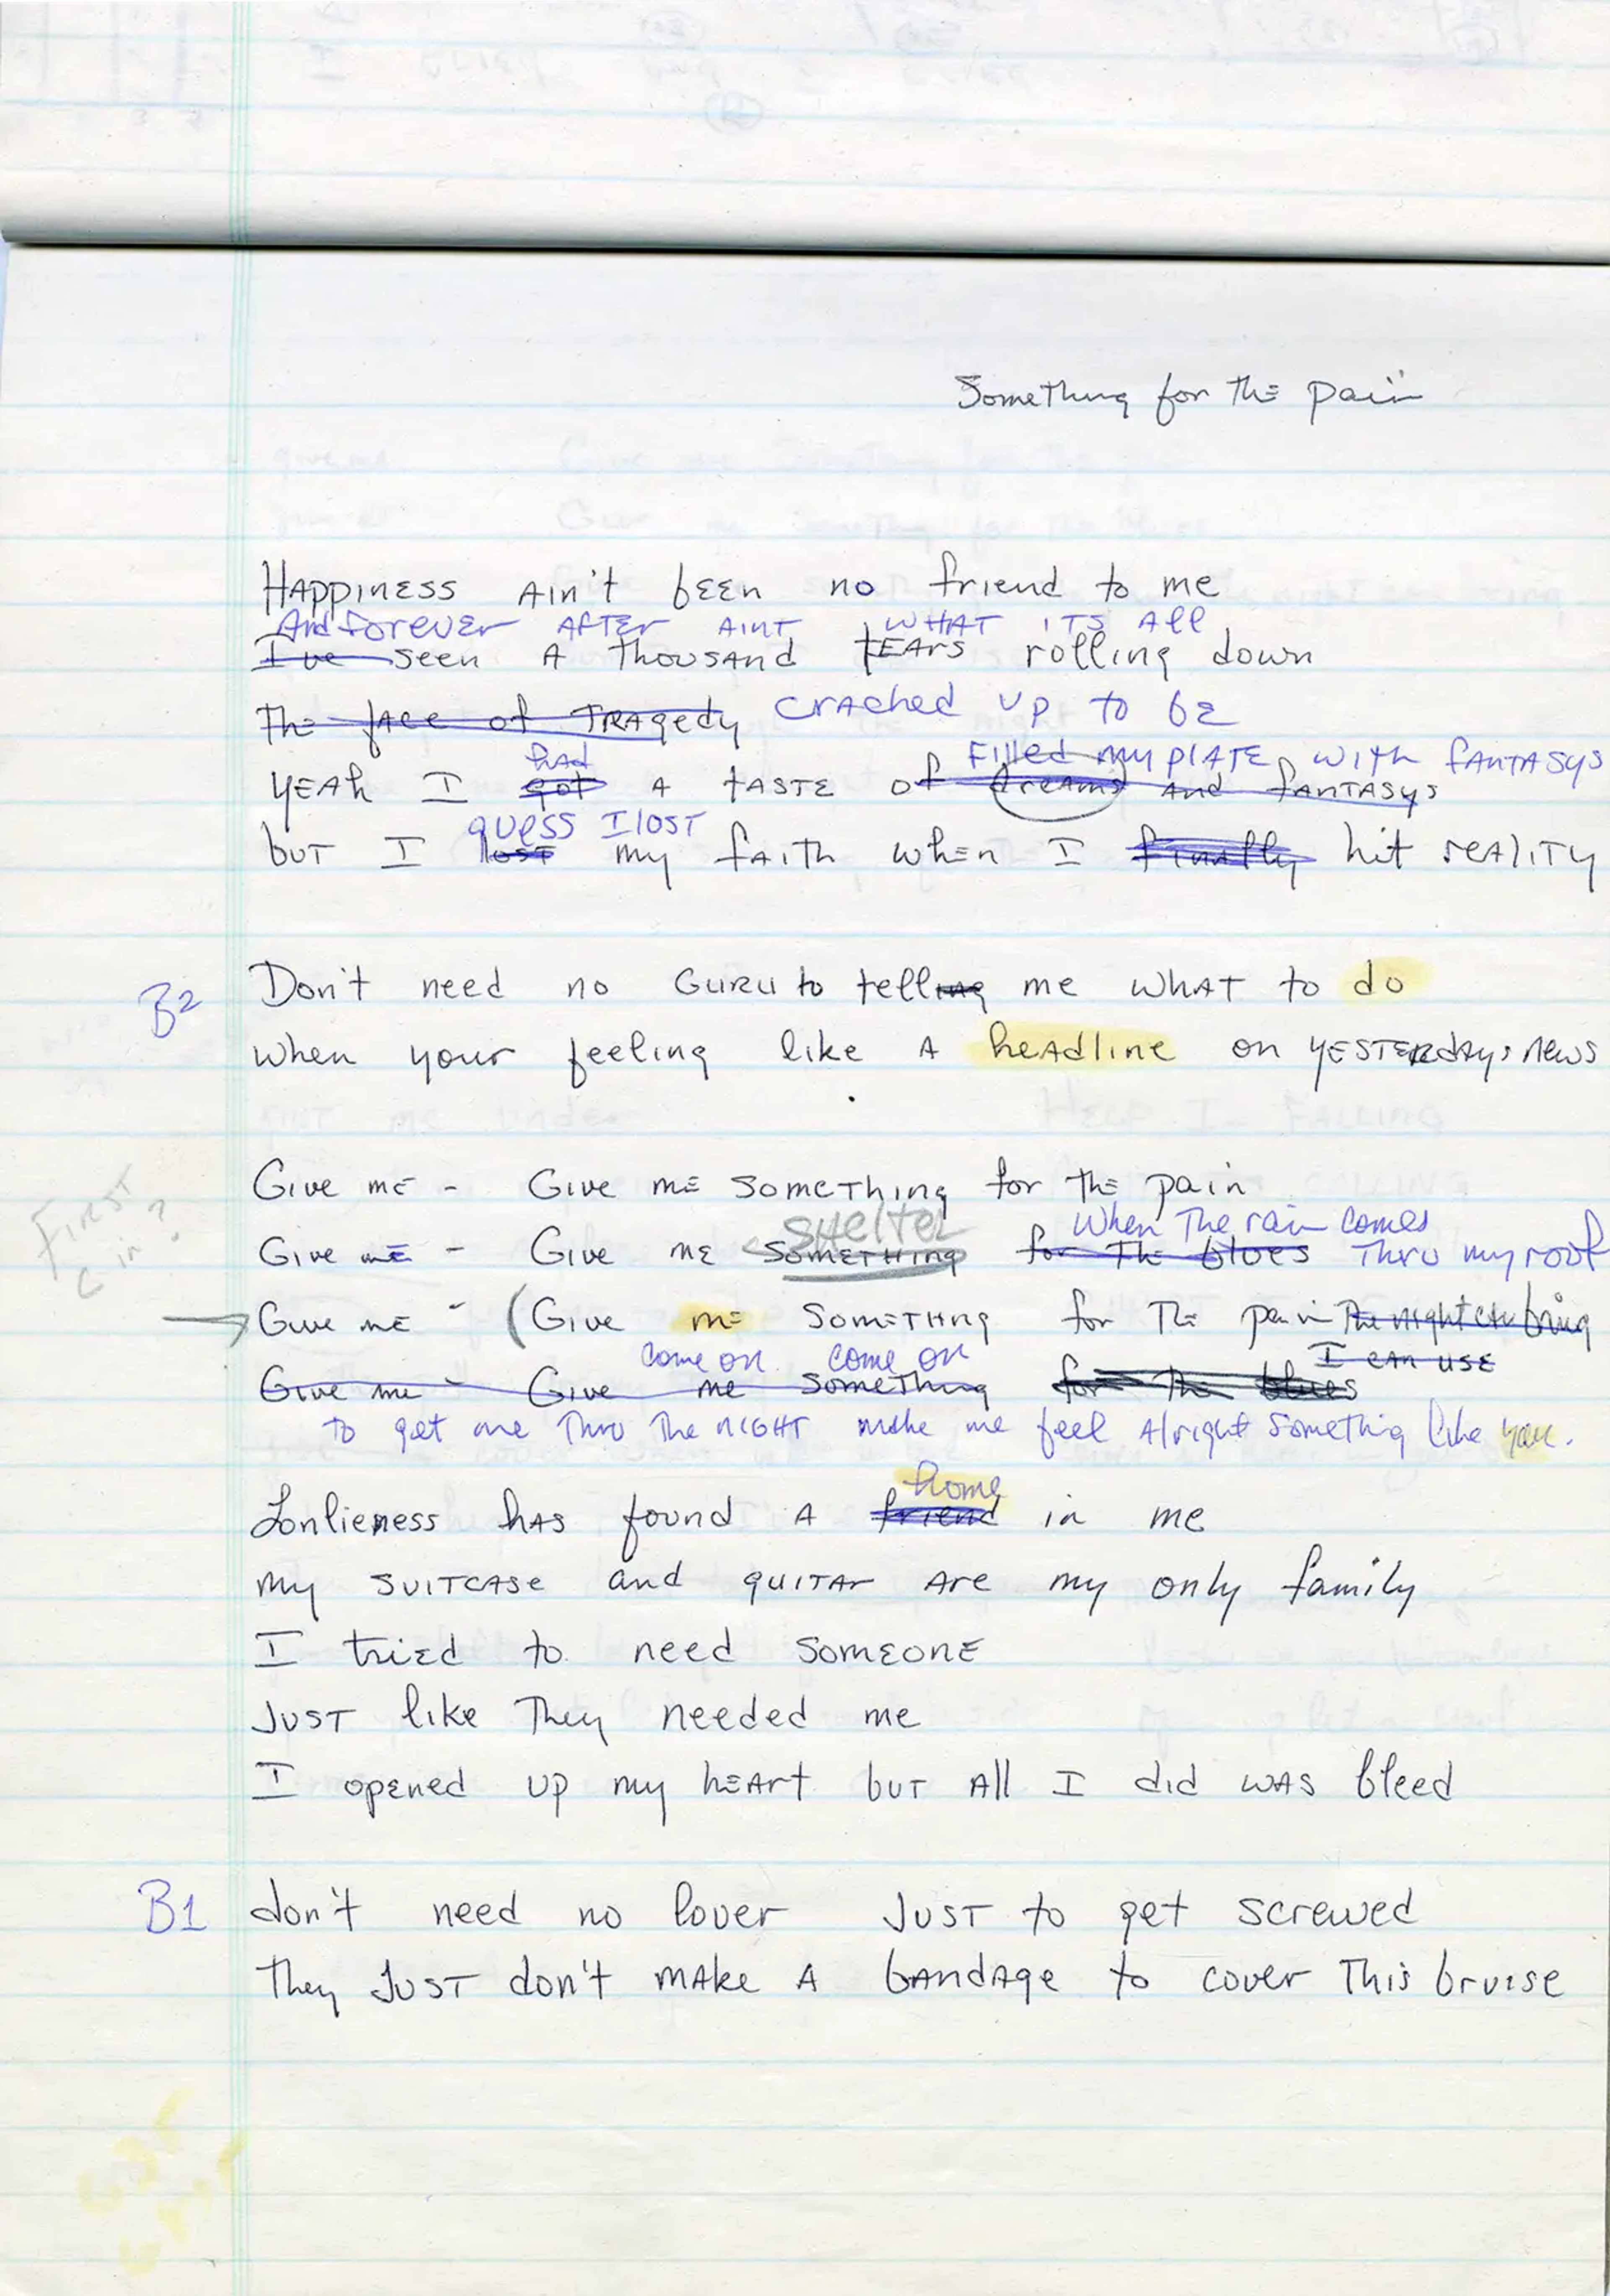 Something for the pain
Happiness ain't been no friend to me
And forever after aint what its all
I've seen a thousand tears rolling down
The face of tragedy cracked up to be
had Filled my plate with fantasys
Yeah I got a taste of dreams and fantasys
guess I lost
but I lost my faith when I finally hit reality
B2 Don't need no guru to telling me what to do
when your feeling like a headline on yesterdays news
Give me - Give me something for the pain
shelter When the rain comes
First
Give me - Give me something for the blues Thru my roof
C in?
Give me - (Give me something for the pain The night can bring
come on come on I can use
Give me - Give me something for the blues
to get me thru the night make me feel alright something like you.
home
Lonlieness has found a friend in me
my suitcase and guitar are my only family
I tried to need someone
Just like they needed me
I opened up my heart but all I did was bleed
B1 don't need no lover Just to get screwed
They Just don't make a bandage to cover this bruise